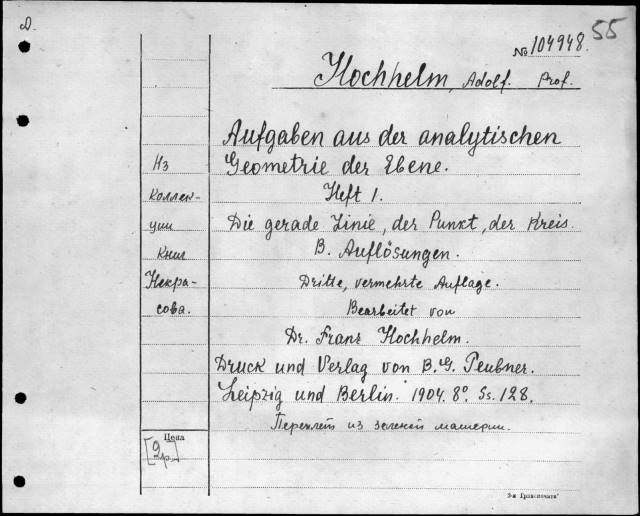 D.
55
№ 104948.
Hochhelm, Adolf. Prof.
Aufgaben aus der analytischen
Geometrie der Ebene.
Heft 1.
Die gerade Linie, der Punkt, der Kreis.
B. Auflösungen.
Dritte, vermehrte Auflage.
Bearbeitet von
Dr. Franz Hochhelm.
Druck und Verlag von B. G. Teubner.
Leipzig und Berlin. 1904. 8°. Ss. 128.
Переплет из зеленой материи.
Из
коллек-
ции
книг
Некра-
сова.
Цена
[2р.]